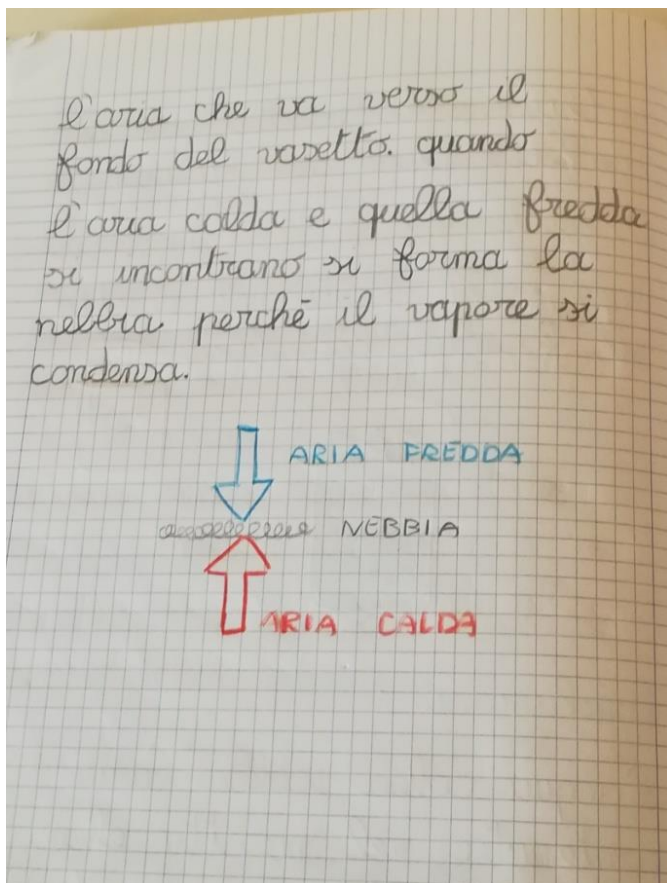 l'aria che va verso il
fondo del vasetto. quando
l'aria calda e quella fredda
si incontrano si forma la
nebbia perchè il vapore si
condensa.
ARIA FREDDA
NEBBIA
ARIA CALDA